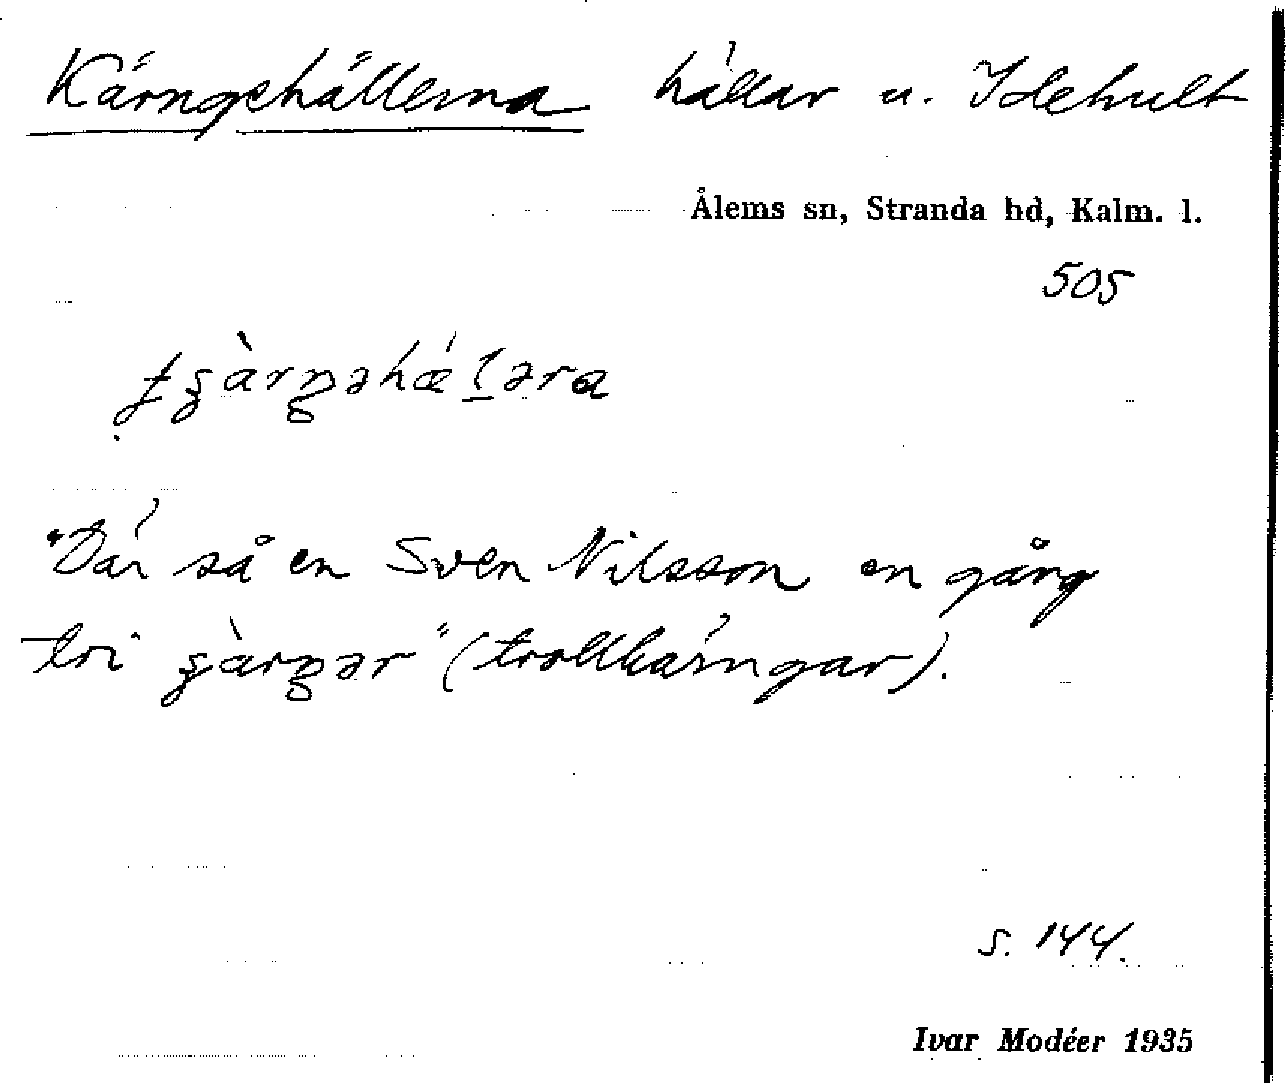 Kärngehällerna hällar u. Idehult
Ålems sn, Stranda hd, Kalm. l.
505
"Där så en Sven Nilsson en gång
tri ʂàrŋər" (trollkärngar).
s. 144.
Ivar Modéer 1935